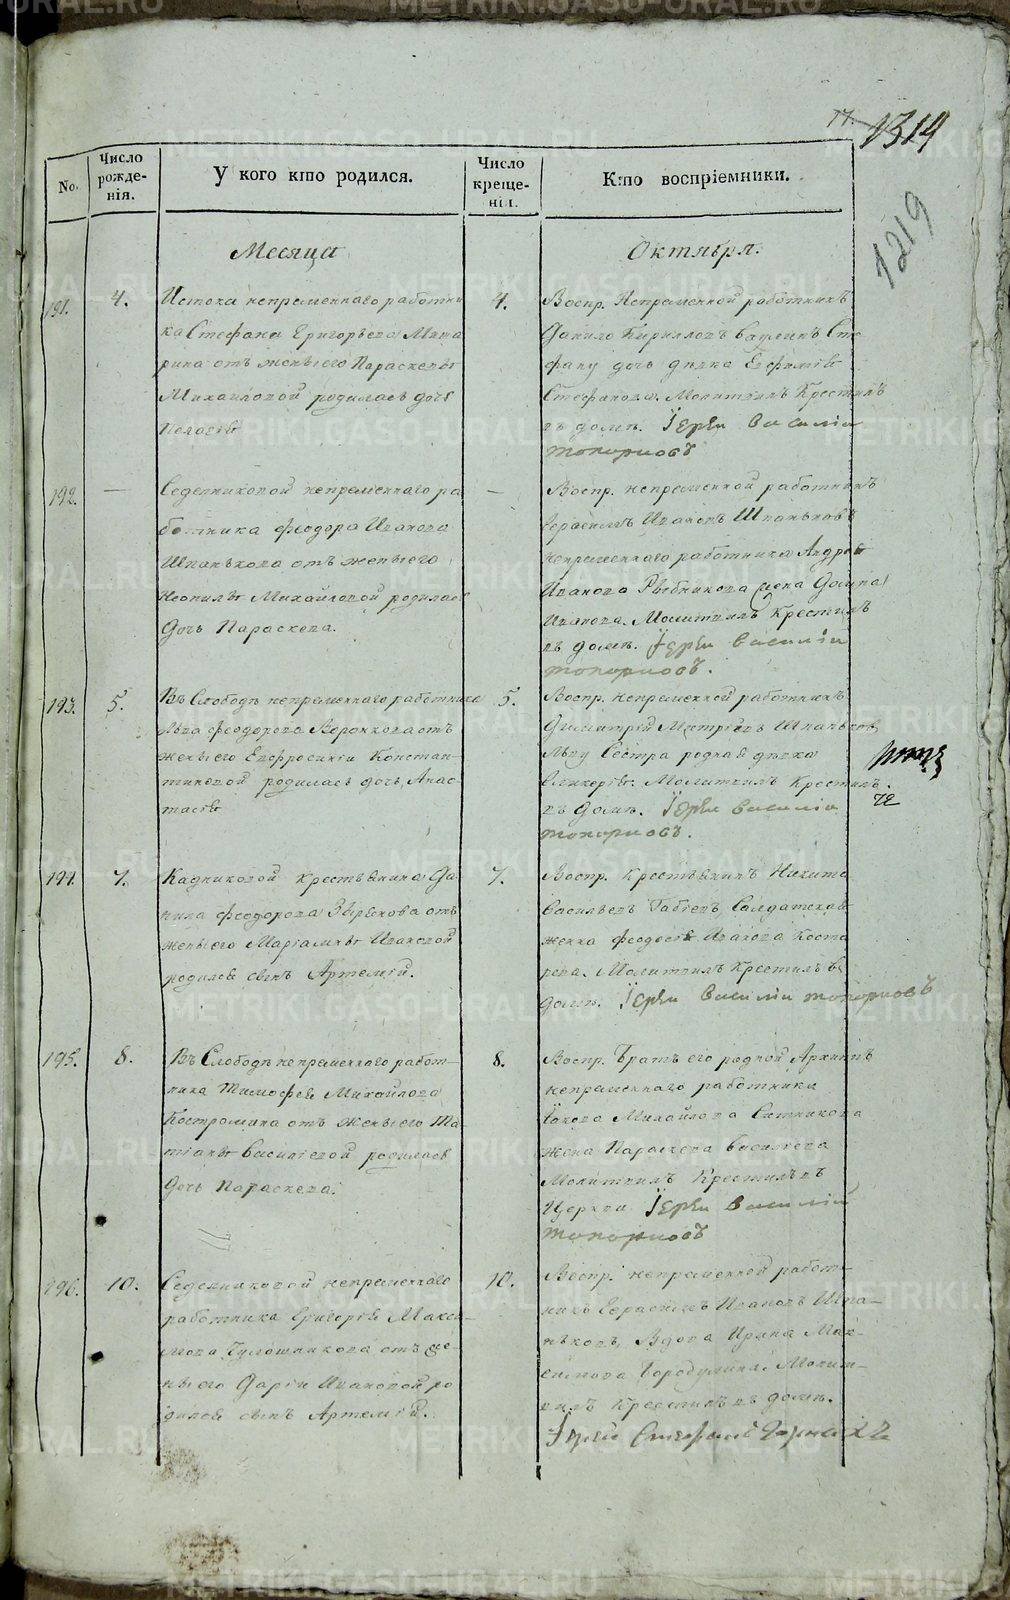 1314
1219
No.
Число рожде-нія.
У кого кто родился.
Число креще-нія.
Кто воспріемники.
Месяца
Октября.
191.
4.
Истока непременнаго работни
ка Стефана Григорьева
рина отъ жены его Параскевы
Михайловой родилась дочь
4.
Воспр. Непременной работникъ
Данило Кириловъ Сте
фану дочь девка Евфимія
Стефанова. Молитвилъ Крестилъ
въ доме. Іерей Василій
Топорковъ
192.
—
Седелниковой непременнаго ра
ботника Феодора Иванова
Шпанькова отъ жены его
Неонилы Михайловой родилась
дочь Параскева.
—
Воспр. непременной работникъ
Герасимъ Ивановъ Шпаньковъ
непременнаго работника Андрея
Иванова Рыбникова жена Домна
Иванова. Молитвилъ Крестилъ
въ доме. Іерей Василій
Топорковъ.
193.
5.
Въ Слободе непременнаго работника
Льва Феодорова Воронкова отъ
жены его Евфросиніи Констан-
тиновой родилась дочь Анас-
тасія
5.
Воспр. непременной работникъ
Димитрій Шпаньковъ
Льву Сестра родная девка
Гликерія. Молитвилъ Крестилъ
въ доме. Іерей Василій
Топорковъ.
194.
7.
Кадниковой крестьянина Да
нила Феодорова Зырянова отъ
жены его Маріамны Ивановой
родился сынъ Артемій.
7.
Воспр. Крестьянинъ Никита
Васильевъ Солдатская
женка Феодосія Иванова Косто
рева. Молитвилъ Крестилъ въ
доме. Іерей Василій Топорковъ
195.
8.
Въ Слободе непременнаго работ-
ника Тимофея Михайлова
Костромина отъ жены его Та
тіаны Василіевой родилась
дочь Параскева.
8.
Воспр. братъ его родной Архипъ
непременнаго работника
Іакова Михайлова Ситникова
жена Параскева Василіева
Молитвилъ Крестилъ въ
Церкви Іерей Василій
Топорковъ
196.
10.
Седелниковой непременнаго
работника Григорія Макси-
мова отъ же-
ны его Даріи Ивановой ро
дился сынъ Артемій.
10.
Воспр. непременной работ-
никъ Герасимъ Ивановъ Шпа-
ньковъ, Вдова Ирина Мак-
симова Бородулина. Молит-
вилъ Крестилъ въ доме.
Іерей
METRIKI.GASO-URAL.RU